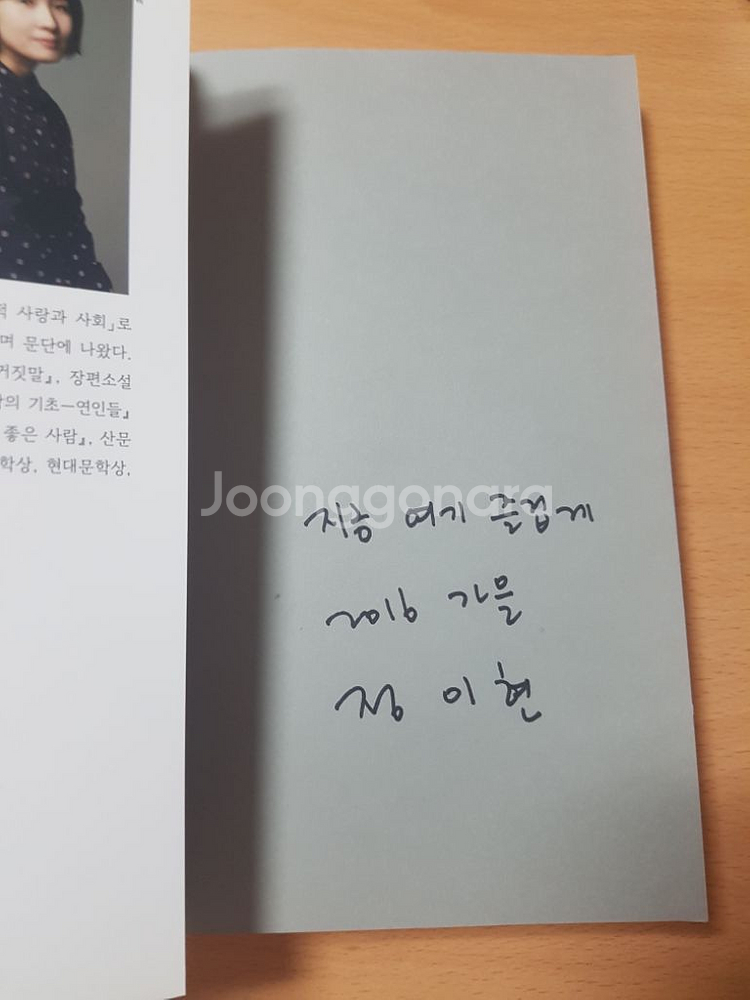 적 사랑과 사회」로
며 문단에 나왔다.
거짓말』, 장편소설
의 기초―연인들』
좋은 사람』, 산문
학상, 현대문학상,
Joonggonara
지금 여기 즐겁게
2016 가을
정이현